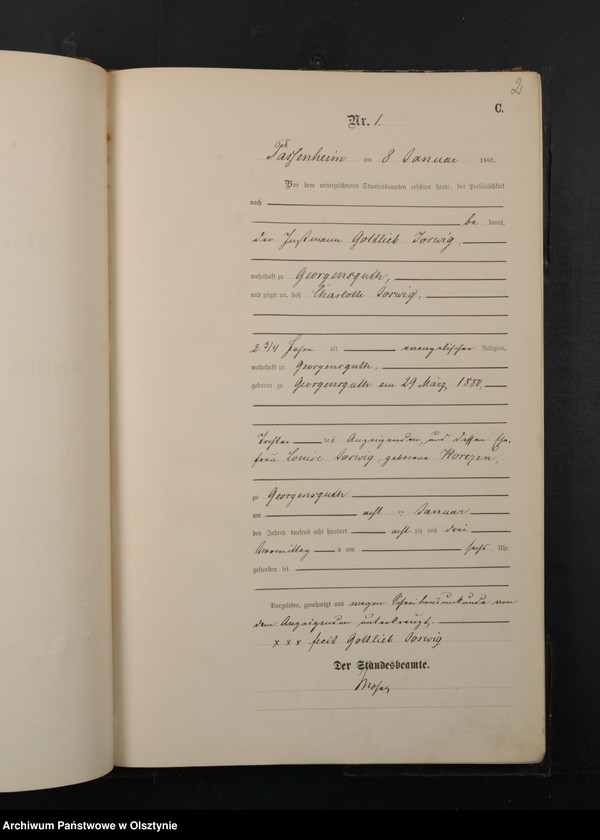 2
C.
Nr. 1.
Passenheim am 8 Januar 1883.
Vor dem unterzeichneten Standesbeamten erschien heute, der Persönlichkeit
nach
be kannt,
der Instmann Gottlieb Soswig,
wohnhaft zu Georgensguth,
und zeigte an, daß Charlotte Soswig,
2 3/4 Jahre alt evangelischer Religion,
wohnhaft zu Georgensguth,
geboren zu Georgensguth am 29 März 1880,
Tochter des Anzeigenden, und dessen Ehe-
frau Louise Soswig, geborene
zu Georgensguth
am acht Januar
des Jahres tausend acht hundert acht zig und drei
Vormittag s um sechs Uhr
gestorben sei
Vorgelesen, genehmigt und wegen Schreibensunkunde von
dem Anzeigenden unterkreuzt.
x x x Gottlieb Soswig
Der Standesbeamte.
Archiwum Państwowe w Olsztynie